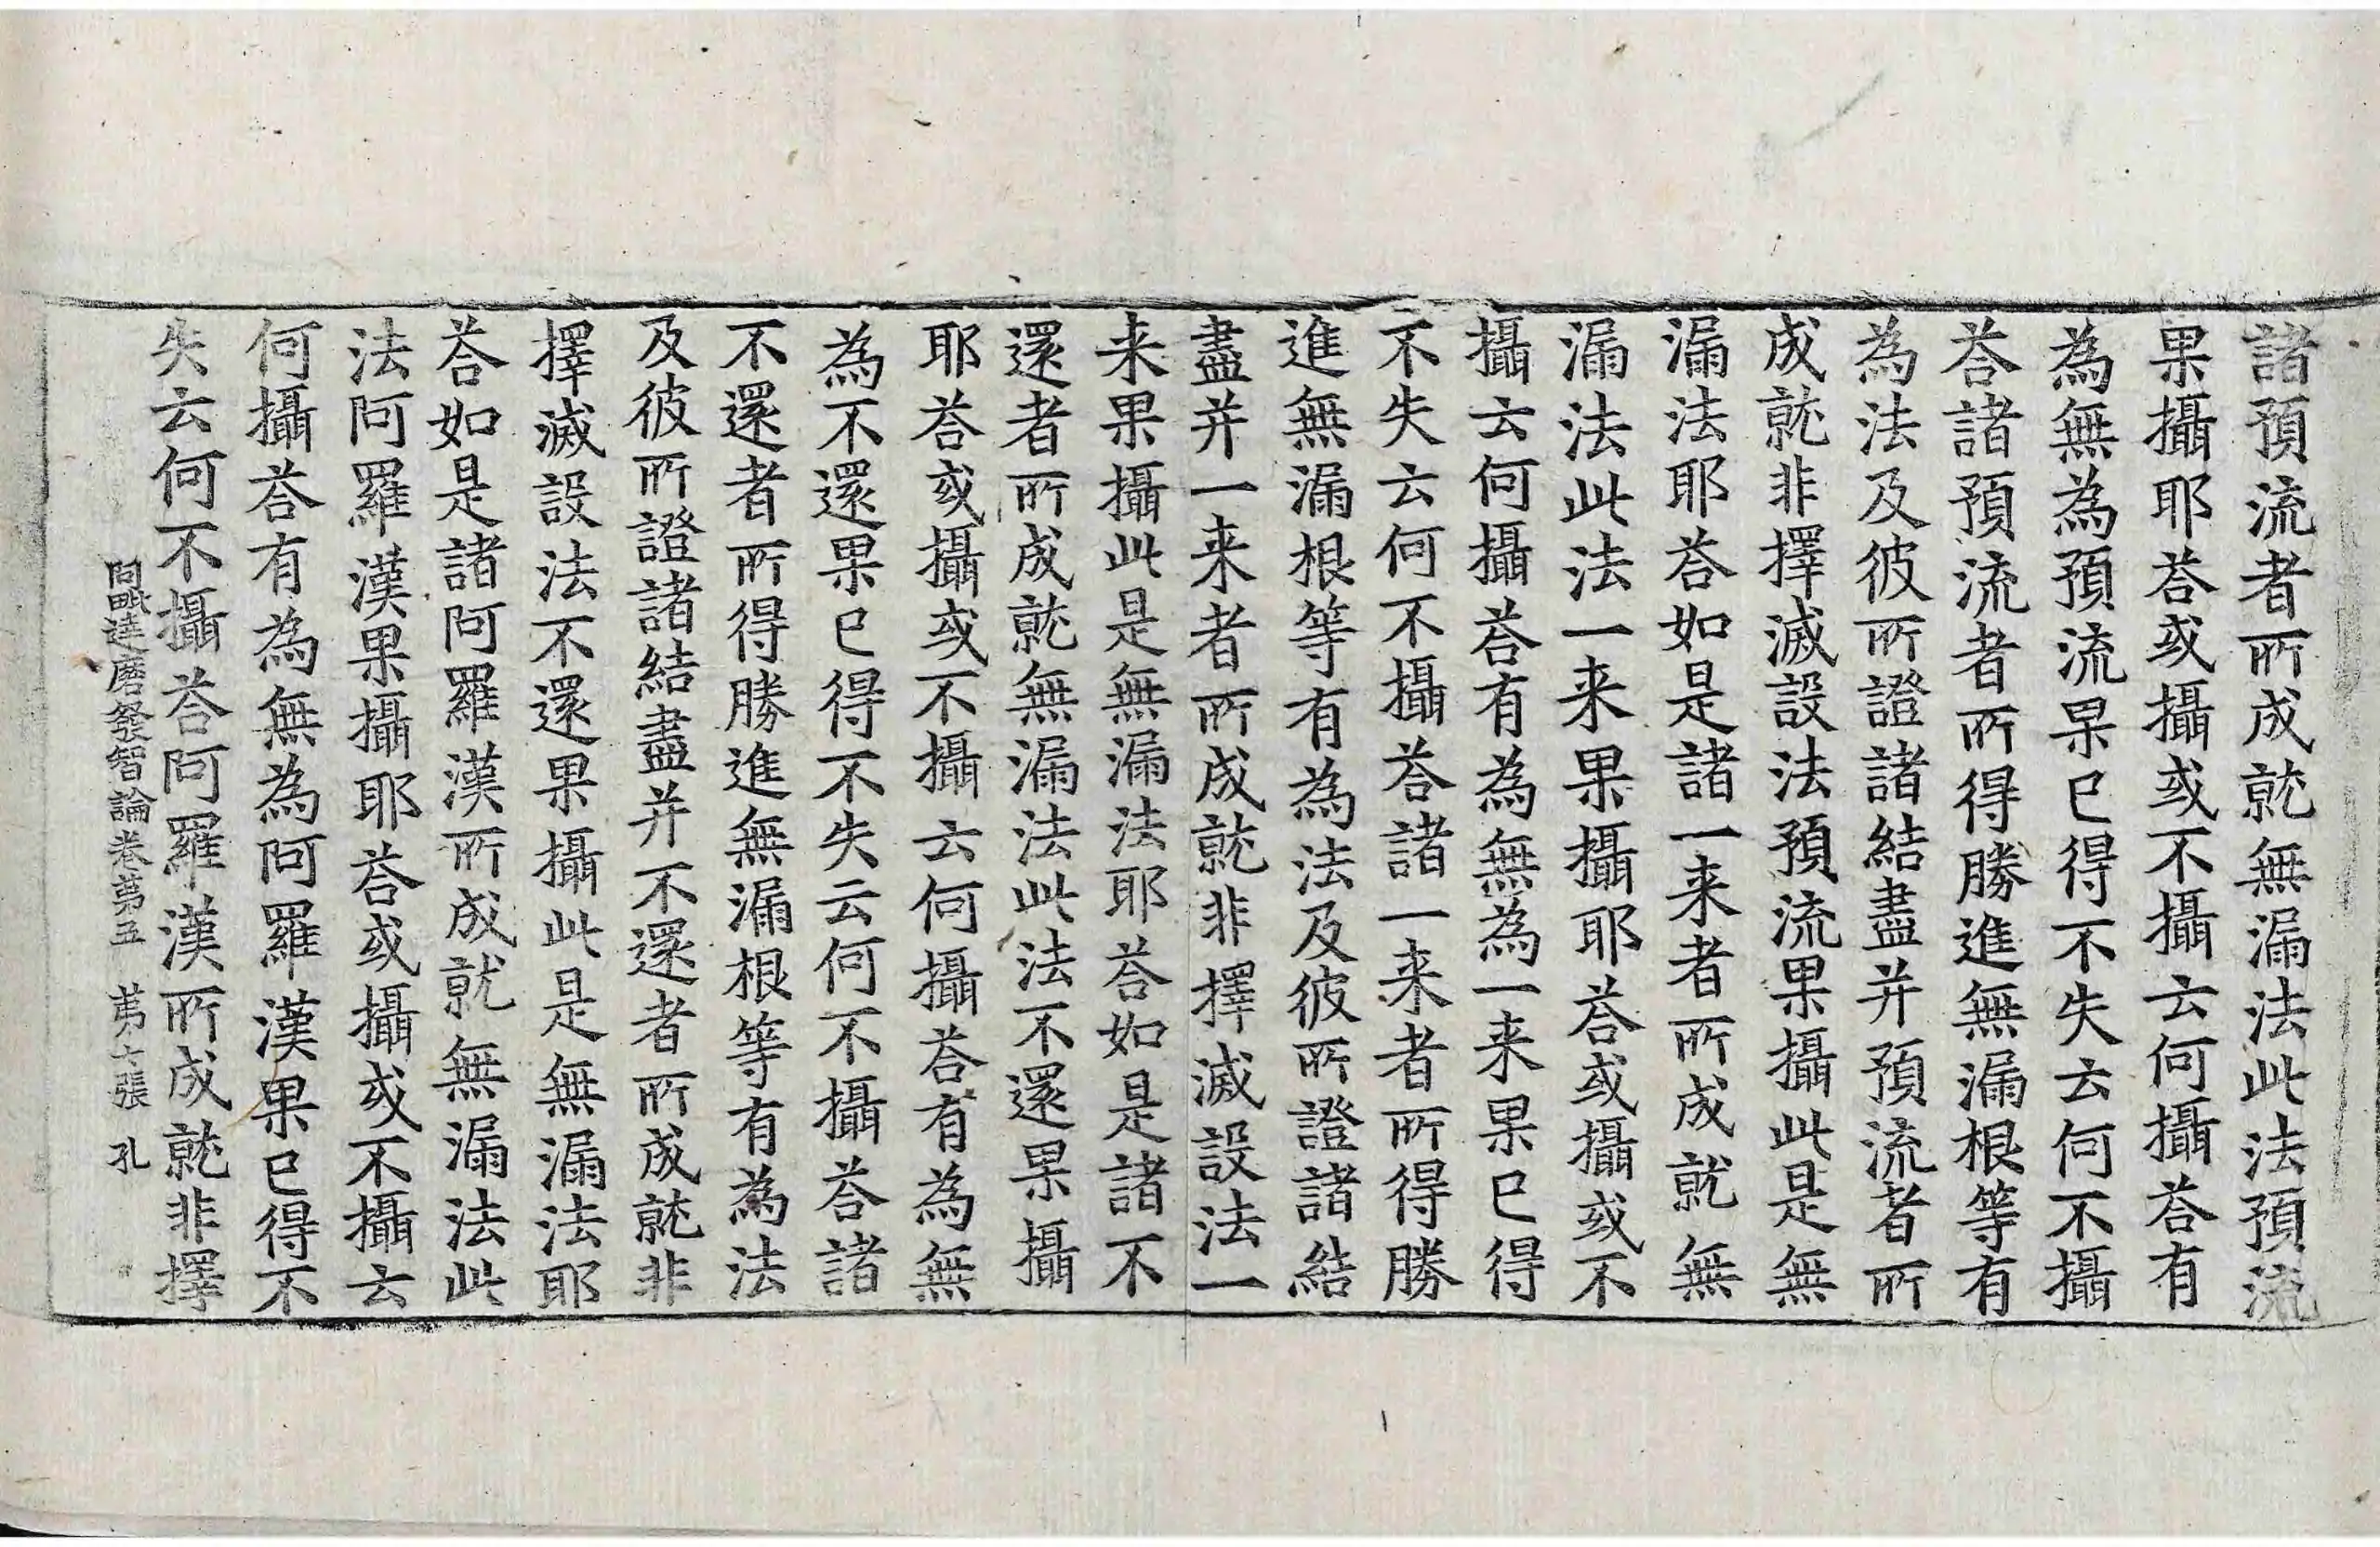 諸預流者所成就無漏法此法預流
果攝耶荅或攝或不攝云何攝荅有
為無為預流果已得不失云何不攝
荅諸預流者所得勝進無漏根等有
為法及彼所證諸結盡并預流者所
成就非擇滅設法預流果攝此是無
漏法耶荅如是諸一来者所成就無
漏法此法一来果攝耶荅或攝或不
攝云何攝荅有為無為一来果已得
不失云何不攝荅諸一来者所得勝
進無漏根等有為法及彼所證諸結
盡并一来者所成就非擇滅設法一
来果攝此是無漏法耶荅如是諸不
還者所成就無漏法此法不還果攝
耶荅或攝或不攝云何攝荅有為無
為不還果已得不失云何不攝荅諸
不還者所得勝進無漏根等有為法
及彼所證諸結盡并不還者所成就非
擇滅設法不還果攝此是無漏法耶
荅如是諸阿羅漢所成就無漏法此
法阿羅漢果攝耶荅或攝或不攝云
何攝荅有為無為阿羅漢果已得不
失云何不攝荅阿羅漢所成就非擇
毗達磨發智論卷苐五 苐六張 孔